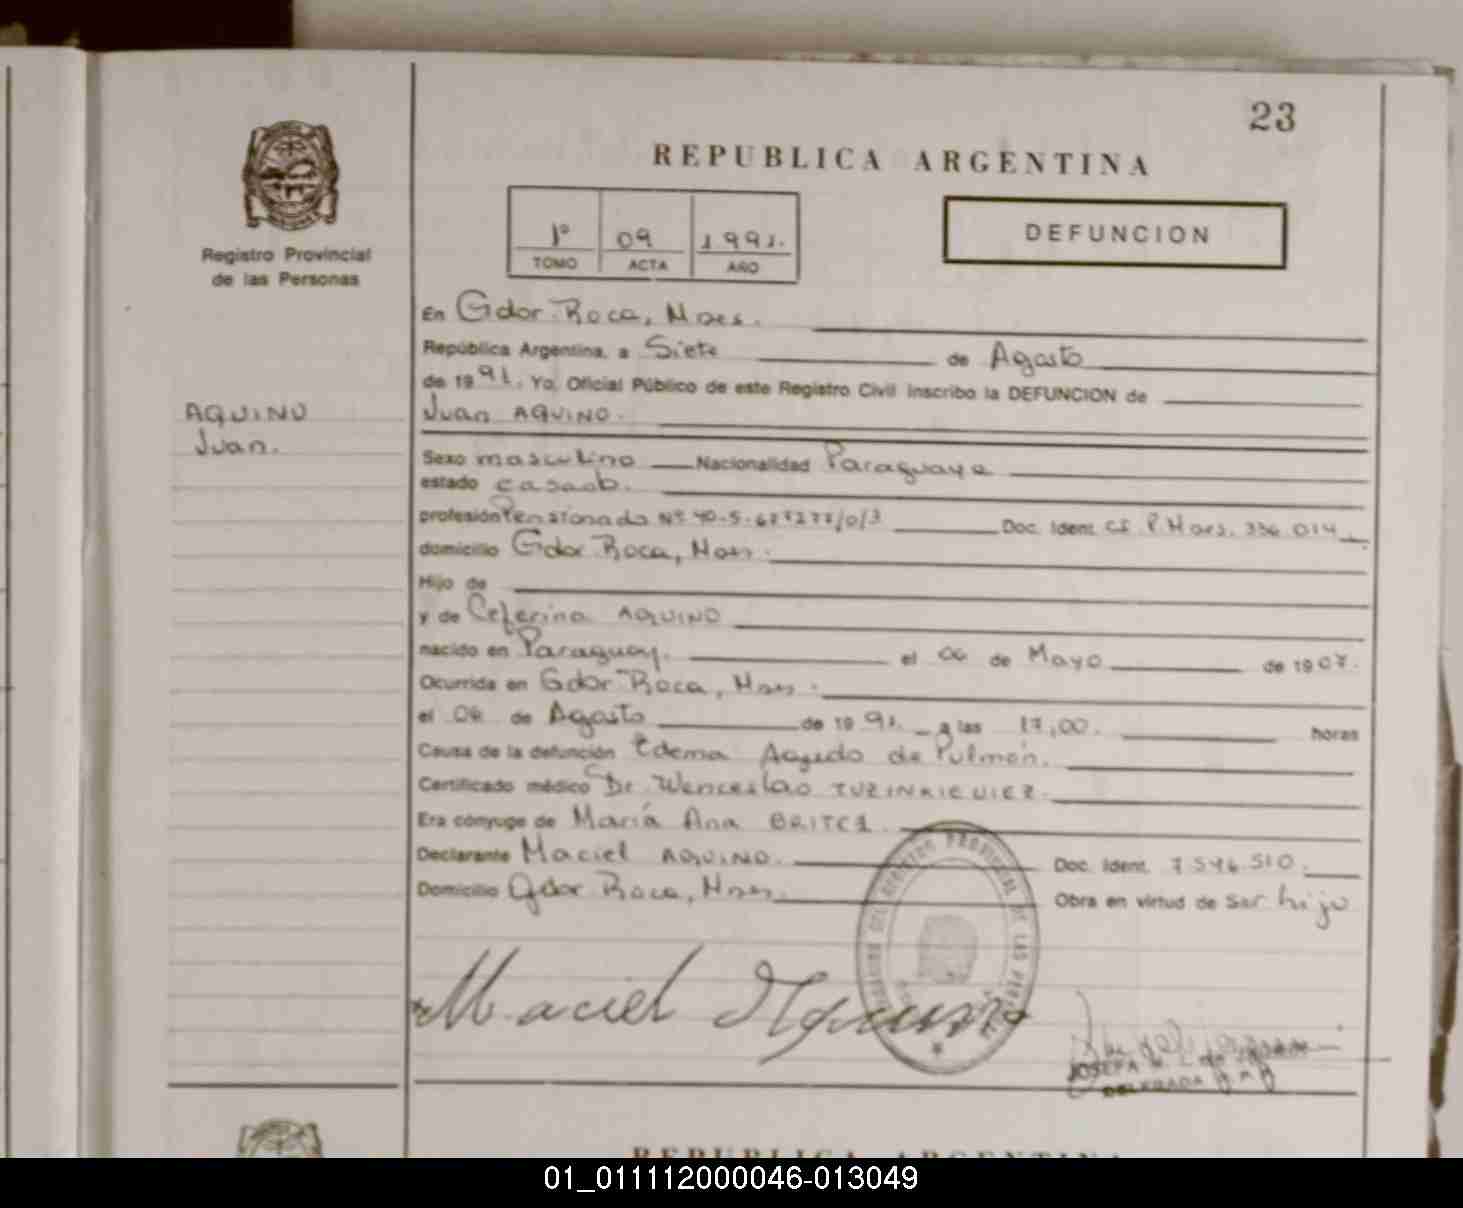 23
REPUBLICA ARGENTINA
Registro Provincial
de las Personas
1º 09 1991.
TOMO ACTA AÑO
DEFUNCION
En Gdor Roca, Mnes.
República Argentina, a Siete de Agosto
de 1991. Yo, Oficial Público de este Registro Civil inscribo la DEFUNCION de
AQUINO
Juan.
Juan AQUINO.
Sexo masculino Nacionalidad Paraguaya
estado casado.
profesión Pensionado Nº Doc. Ident. CI. P. Mnes. 336.014
domicilio Gdor Roca, Mnes.
Hijo de
y de Ceferina AQUINO
nacido en Paraguay. el 06 de Mayo de 1907.
Ocurrida en Gdor Roca, Mnes.
el 06 de Agosto de 1991. a las 17,00. horas
Causa de la defunción Edema Agudo de Pulmón.
Certificado médico Dr. Wenceslao
Era cónyuge de María Ana
Declarante Maciel AQUINO. Doc. Ident. 7.546.510.
Domicilio Gdor Roca, Mnes. Obra en virtud de Ser hijo
Maciel Aquino
PROVINCIAL DE LAS
JOSEFA
DELEGADA
REPUBLICA ARGENTINA
01_011112000046-013049